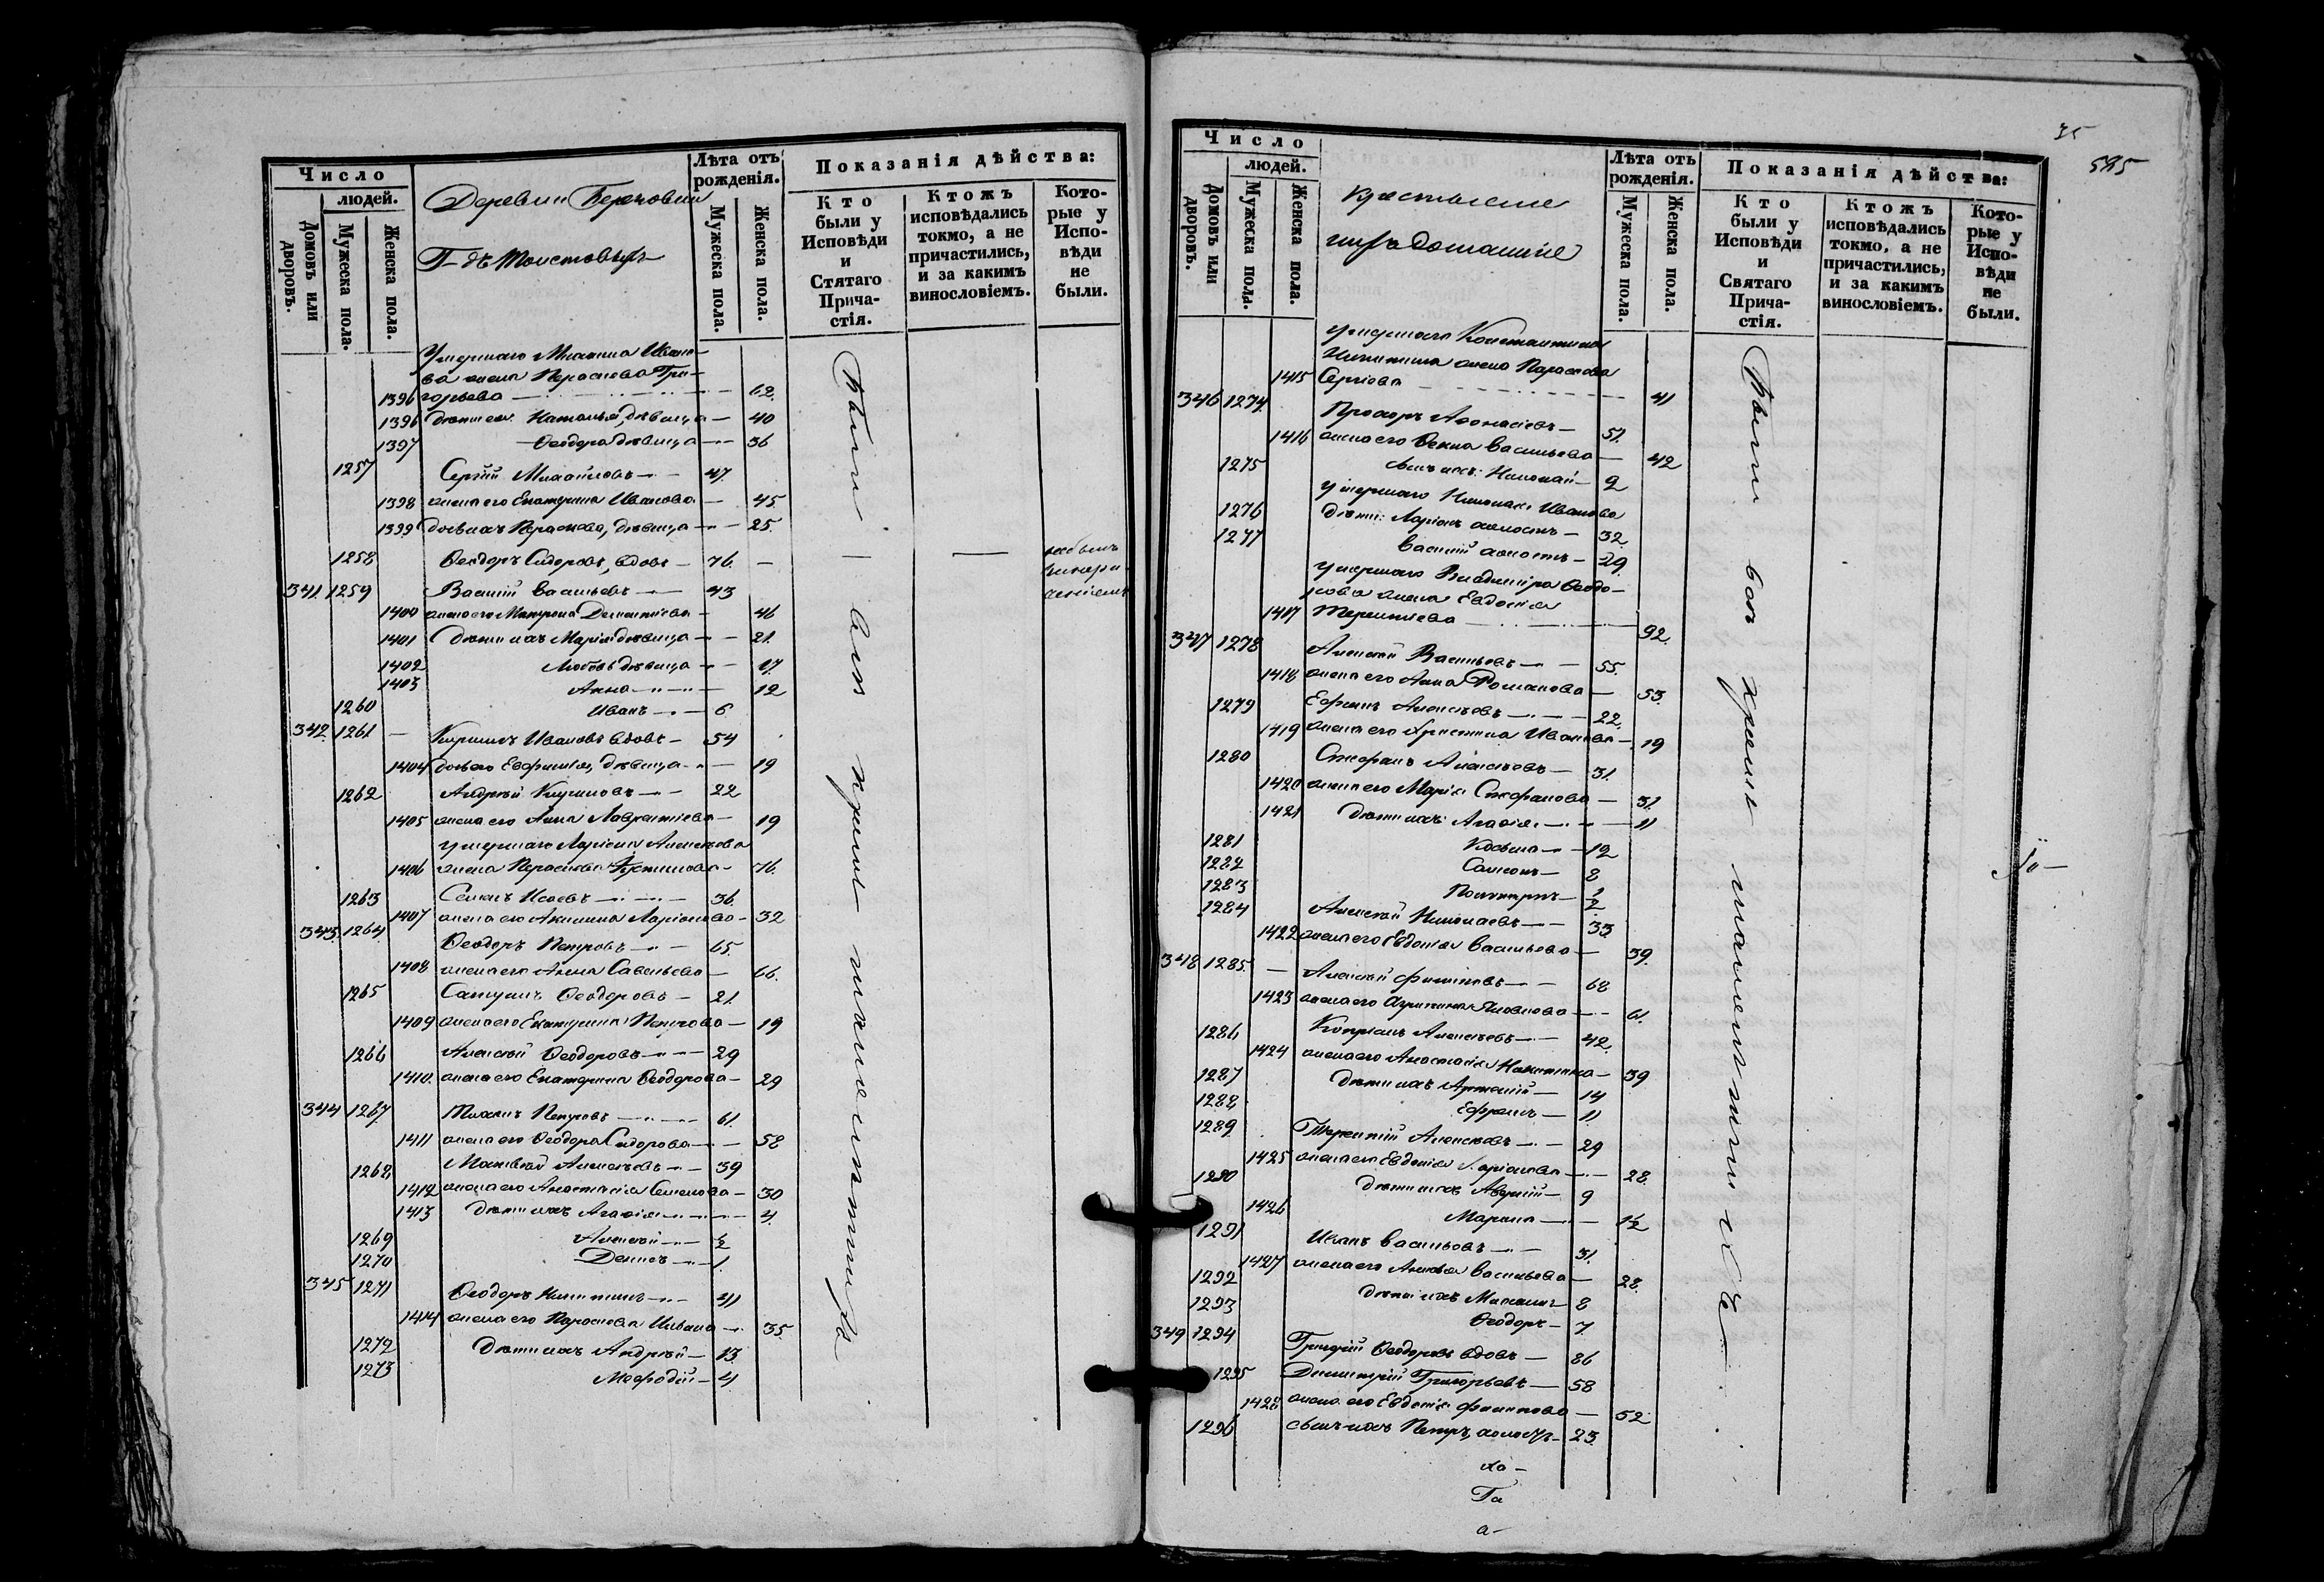 Число
людей.
Домовъ или дворовъ.
Мужеска пола.
Женска пола.
Деревни Березовки
Г-дъ Толстовыхъ
Лѣта отъ рожденія.
Мужеска пола.
Женска пола.
Показанія дѣйства:
Кто были у Исповѣди и Стятаго Прича-стія.
Ктожъ исповѣдались токмо, а не причастились, и за какимъ винословіемъ.
Кото-рые у Испо-вѣди не были.
Умершаго Михаила Ивано-
ва жена Параскева Гри-
1396 горьева 62.
1396 дѣти ея: Наталья, дѣвица 40
1397 Ѳеодора дѣвица 36
1257 Сергій Михайловъ 47.
1398 жена его Екатерина Иванова 45.
1399 дочь ихъ Параскева, дѣвица 25.
1258 Ѳеодоръ Сидоровъ, вдовъ 76.
341. 1259 Василій Васильевъ 43
1400 жена его Матрона Дементіева 46
1401 Дѣти ихъ Марія дѣвица 21.
1402 Любовь дѣвица 17.
1403 Анна 12
1260 Иванъ 6
342. 1261 Кириллъ Ивановъ вдовъ 54
1404 дочь его Евфимія, дѣвица 19
1262 Андрей Кириловъ 22
1405 жена его Анна Лаврентіева 19
умершаго Ларіона Алексѣева
1406 жена Параскева 76.
1263 Семенъ Исаевъ 36.
1407 жена его Акилина Ларіонова 32
343. 1264. Ѳеодоръ Петровъ 65.
1408 жена его Анна Савельева 66.
1265 Сатурнъ Ѳеодоровъ 21.
1409 жена его Екатерина Петрова 19
1266 Алексѣй Ѳеодоровъ 29
1410. жена его Екатерина Ѳеодорова 29
344 1267. Михаилъ Петровъ 61.
1411 жена его Ѳеодора Сидорова 58
1268 Матвѣй Алексѣевъ 39
1412 жена его Анастасія Семенова 30
1413 Дѣти ихъ Агафія 4.
1269 Алексѣй ½
1270 Денисъ 1.
345 1271 Ѳеодоръ Никитинъ 41
1414 жена его Параскева Ильина 35.
1272 Дѣти ихъ Андрей 13.
1273 Меѳодій 4
Были
вси
Число
людей.
Домовъ или дворовъ.
Мужеска пола.
Женска пола.
крестьяне
ихъ домашніе
Лѣта отъ рожденія.
Мужеска пола.
Женска пола.
Показанія дѣйства:
Кто были у Исповѣди и Святаго Прича-стія.
Ктожъ исповѣдались токмо, а не причастились, и за какимъ винословіемъ.
Кото-рые у Испо-вѣди не были.
35
595
умершаго Константина
Никитина жена Параскева
1415 Сергіева 41
346 1274. Прохоръ Аѳонасіевъ 51.
1416 жена его Ѳекла Васильева 42
1275 сынъ ихъ: Николай 9
умершаго Николая Иванова
1276 дѣти: Ларіонъ холостъ 32.
1277 Василій холостъ 29.
умершаго Владиміра Ѳеодо-
рова жена Евдокія
1417 Терентіева 92.
347 1278 Алексѣй Васильевъ 55.
1418 жена его Анна Романова 53.
1279 Ефимъ Алексѣевъ 22.
1419 жена его Христина Иванова 19
1280 Стефанъ Алексѣевъ 31.
1420 жена его Марія Стефанова 31.
1421 Дѣти ихъ: Агафія 11
1281 Косьма 12
1282 Самсонъ 8
1283 ½
1284 Алексѣй Николаевъ 33.
1422 жена его Евдокія Васильева 39.
348 1285. Алексѣй Филиповъ 68
1423 жена его Агрипина Яковлева 61.
1286 Кипріанъ Алексѣевъ 42.
1424 жена его Анастасія Никитина 39
1287 Дѣти ихъ Артемій 14
1288 Ефремъ 11
1289. Терентій Алексѣевъ 29
1425 жена его Евдокія Ларіонова 28.
1290 Дѣти ихъ Аверкій 9
1426 Марина ½
1291 Иванъ Васильевъ 31.
1427 жена его Васильева 28.
1292 Дѣти ихъ Михаилъ 8
1293 Ѳеодоръ 7.
349 1294 Григорій Ѳеодоровъ вдовъ 86
1295 Димитрій Григорьевъ 58
1428 жена его Евдокія Филипова 52
1296 сынъ ихъ Петръ, холостъ 23.
Были вси
хо-
Та
а-